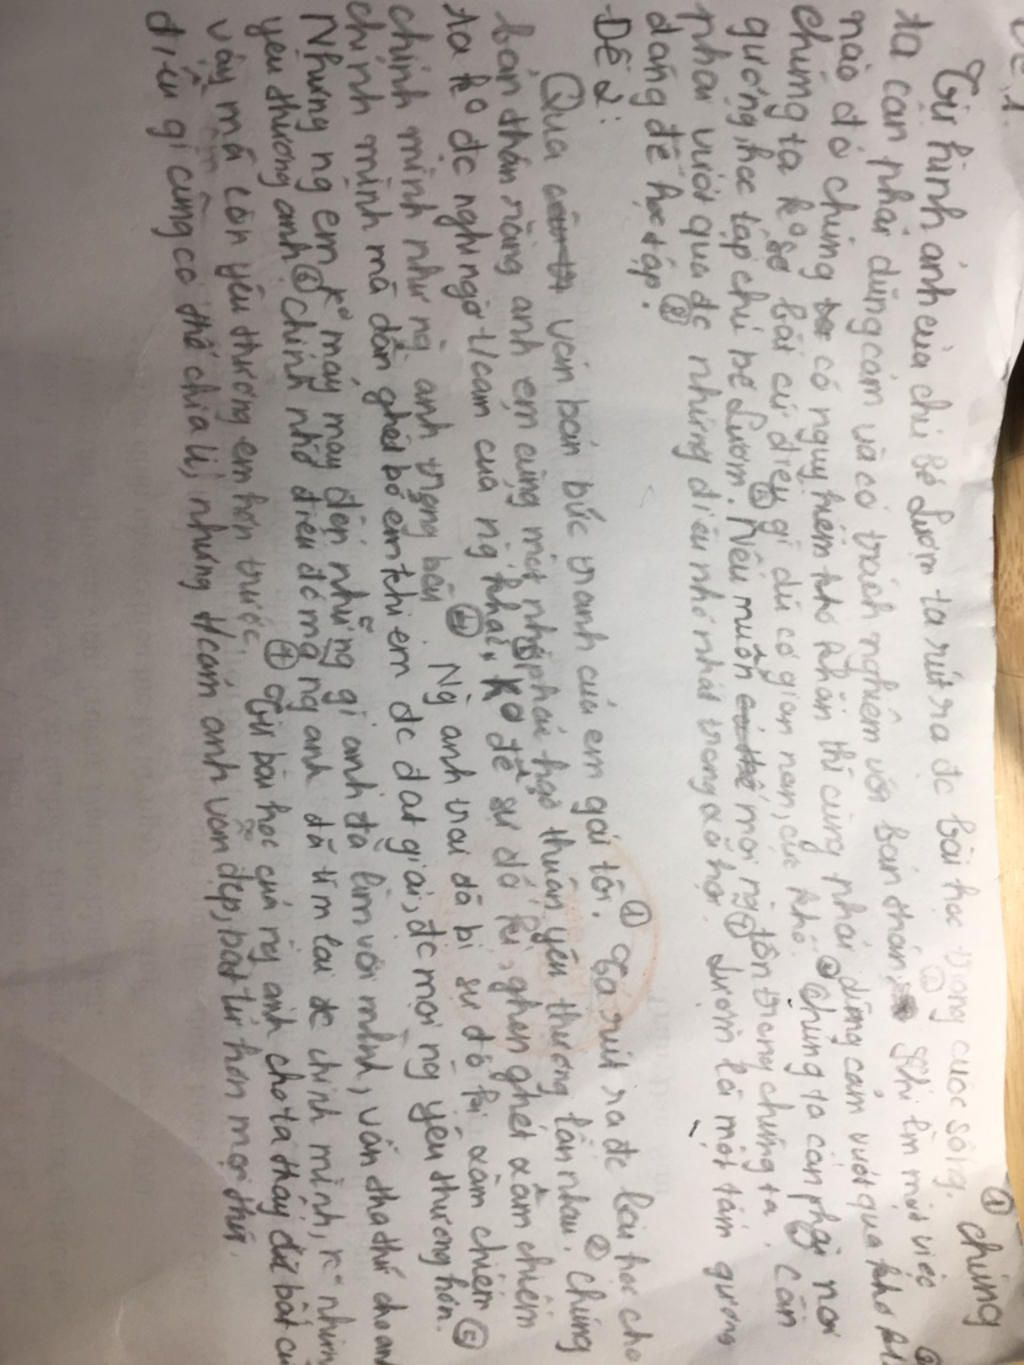 Đề 1.
Từ hình ảnh của chú bé Lượm ta rút ra đc bài học trong cuộc sống. ① chúng
ta cần phải dũng cảm và có trách nghiệm với bản thân, ② Khi làm một việc
nào đó chúng có nguy hiểm khó khăn thì cũng phải dũng cảm vượt qua khó
chúng ta ko sợ bất cứ điều gì dù có gian nan, cực khổ. ④ chúng ta cần phải noi
gương, học tập chú bé Lượm. ⑤ Nếu muốn mọi ng tôn trọng chúng ta cần
phải vượt qua đc những điều nhỏ nhất trong xã hội. Lượm là một tấm gương
đáng để học tập.
Đề 2:
Qua văn bản bức tranh của em gái tôi. ① Ta rút ra đc bài học cho
bản thân rằng anh em cùng một nhà phải hoà thuận yêu thương lẫn nhau. ② chúng
ta ko đc nghi ngờ t/cảm của ng khác, ko để sự đố kị, ghen ghét xâm chiếm
chính mình như ng anh trong bài. ④ Ng anh trai đã bị sự đố kị xâm chiếm ⑤
chính mình mà dần ghét bỏ em khi em đc đạt giải, đc mọi ng yêu thương hơn.
Nhưng ng em ko mảy may đến những gì anh đã làm với mình, vẫn tha thứ cho anh
yêu thương anh. ⑥ chính nhờ điều đó mà ng anh đã tìm lại đc chính mình,
vậy mà còn yêu thương em hơn trước. ⑦ Từ bài học của ng anh cho ta thấy dù bất cứ
điều gì cũng có thể chia li, nhưng t/cảm anh vẫn đẹp, bất tử hơn mọi thứ.